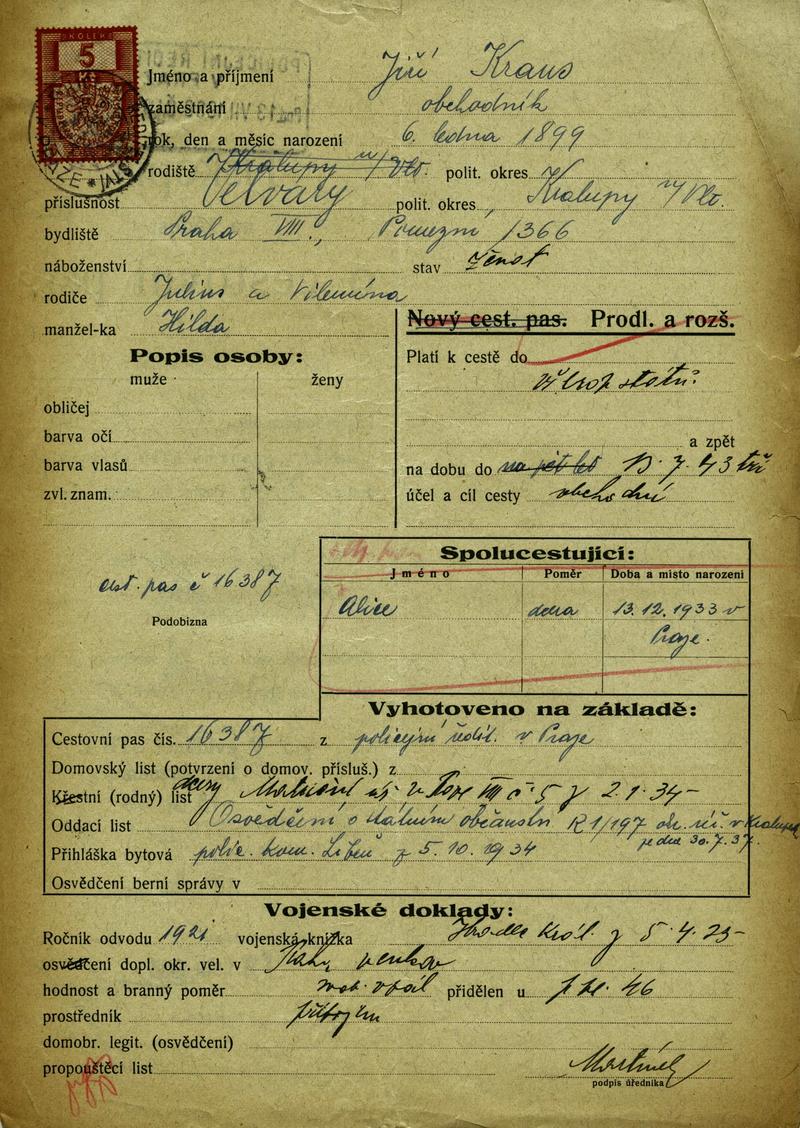 5
Jméno a příjmení Jiří Kraus
zaměstnání obchodník
rok, den a měsíc narození 6. ledna 1899
rodiště Kralupy n/Vlt. polit. okres
příslušnost Velvary polit. okres Kralupy n/Vlt.
bydliště Praha VIII., Pomezní 1366
náboženství stav ženat
rodiče Julius a Vilemína
manžel-ka Hilda
Nový cest. pas. Prodl. a rozš.
Popis osoby:
muže ženy
obličej
barva očí
barva vlasů
zvl. znam.
Platí k cestě do
všech států
a zpět
na dobu do na pět let 13. 7. 43 tři
účel a cíl cesty obchodní
cest. pas č 16387
Podobizna
Spolucestující:
Jméno Poměr Doba a místo narození
Alice dcera 13. 12. 1933 v
Praze.
Vyhotoveno na základě:
Cestovní pas čís. 16387 z policejní ředit. v Praze
Domovský list (potvrzení o domov. přísluš.) z
Křestní (rodný) list dcery VIII č 5 z 2. 1. 34
Oddací list Osvědčení o státním občanství R 1/197 ok. úř. v Kralupech
ze dne 30. 7. 37.
Přihláška bytová polic. kom. Libeň z 5. 10. 1934
Osvědčení berní správy v
Vojenské doklady:
Ročník odvodu 1921 vojenská knížka Král. z 5. 4. 23
osvědčení dopl. okr. vel. v Praha venkov
hodnost a branný poměr přidělen u 46
prostředník
domobr. legit. (osvědčení)
propouštěcí list
podpis úředníka